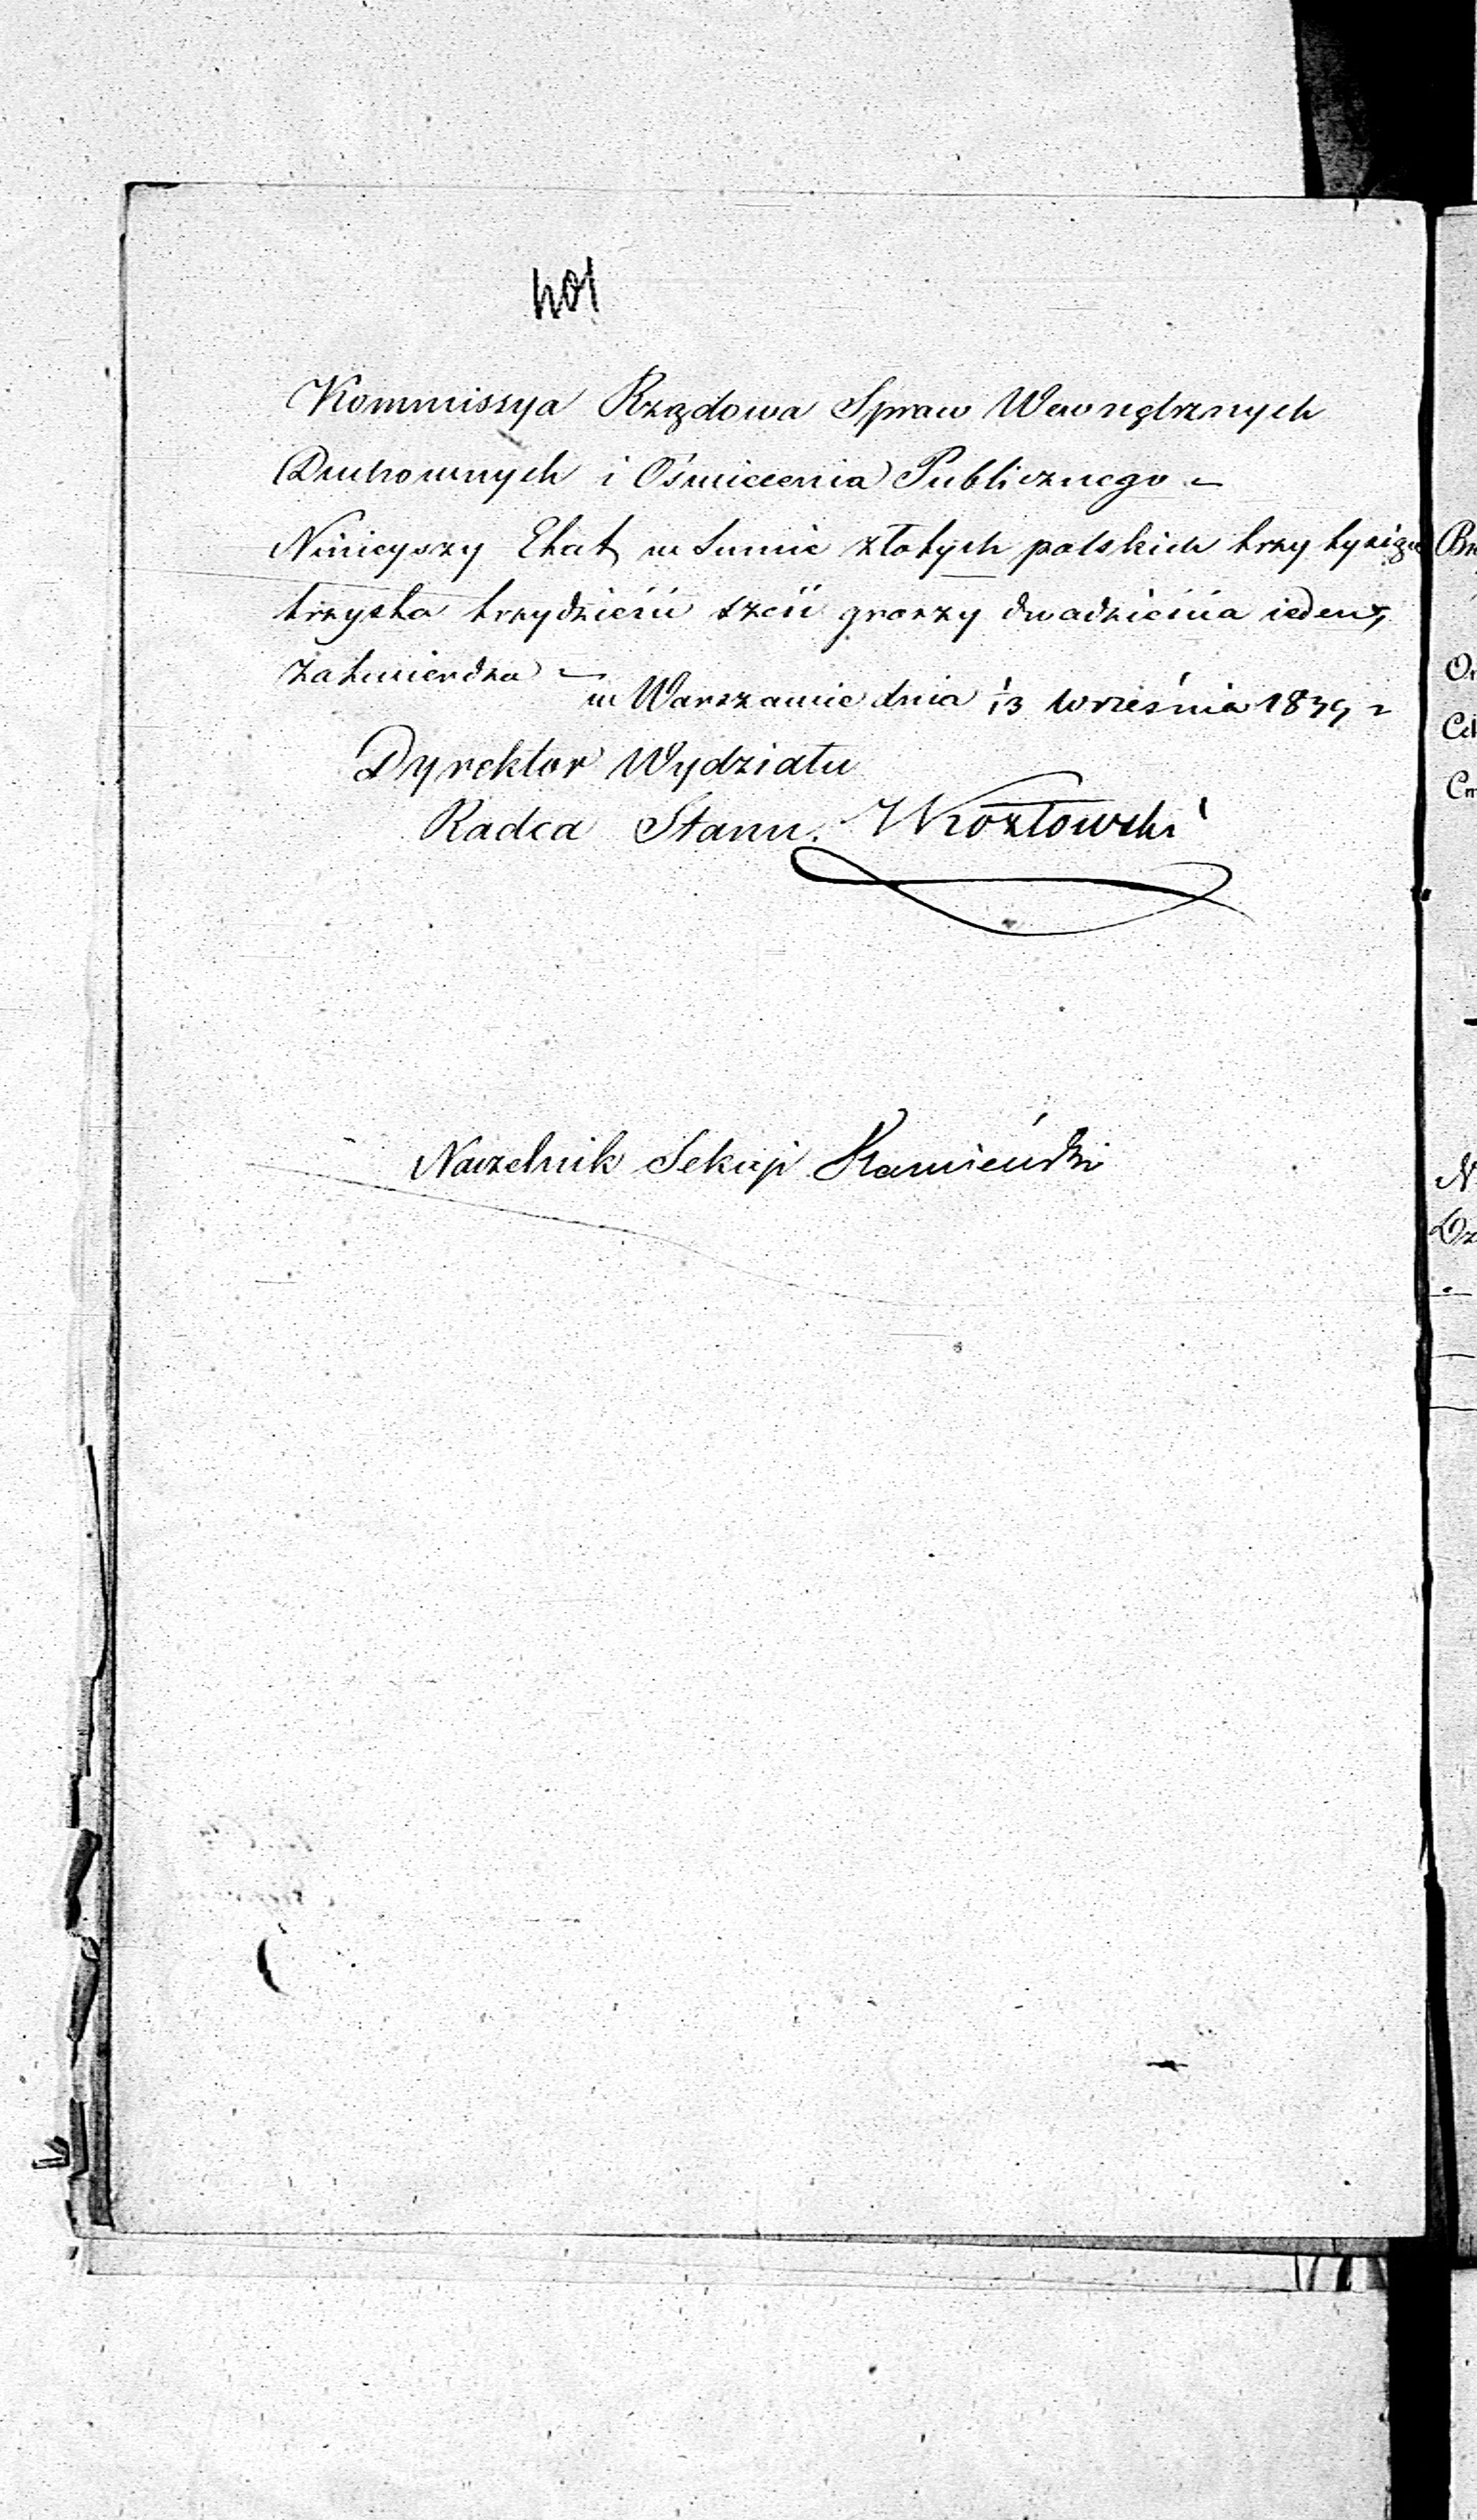 401
Kommissya Rządowa Spraw Wewnętrznych
Duchownych i Oświecenia Publicznego
Ninieyszy Etat w Summie złotych polskich trzy tysiące
trzysta trzydzieści sześć groszy dwadzieścia ieden,
zatwierdza
w Warszawie dnia 1/13 września 1839 r
Dyrektor Wydziału
Radca Stanu. Kozłowski
Naczelnik Sekcji Kamieński